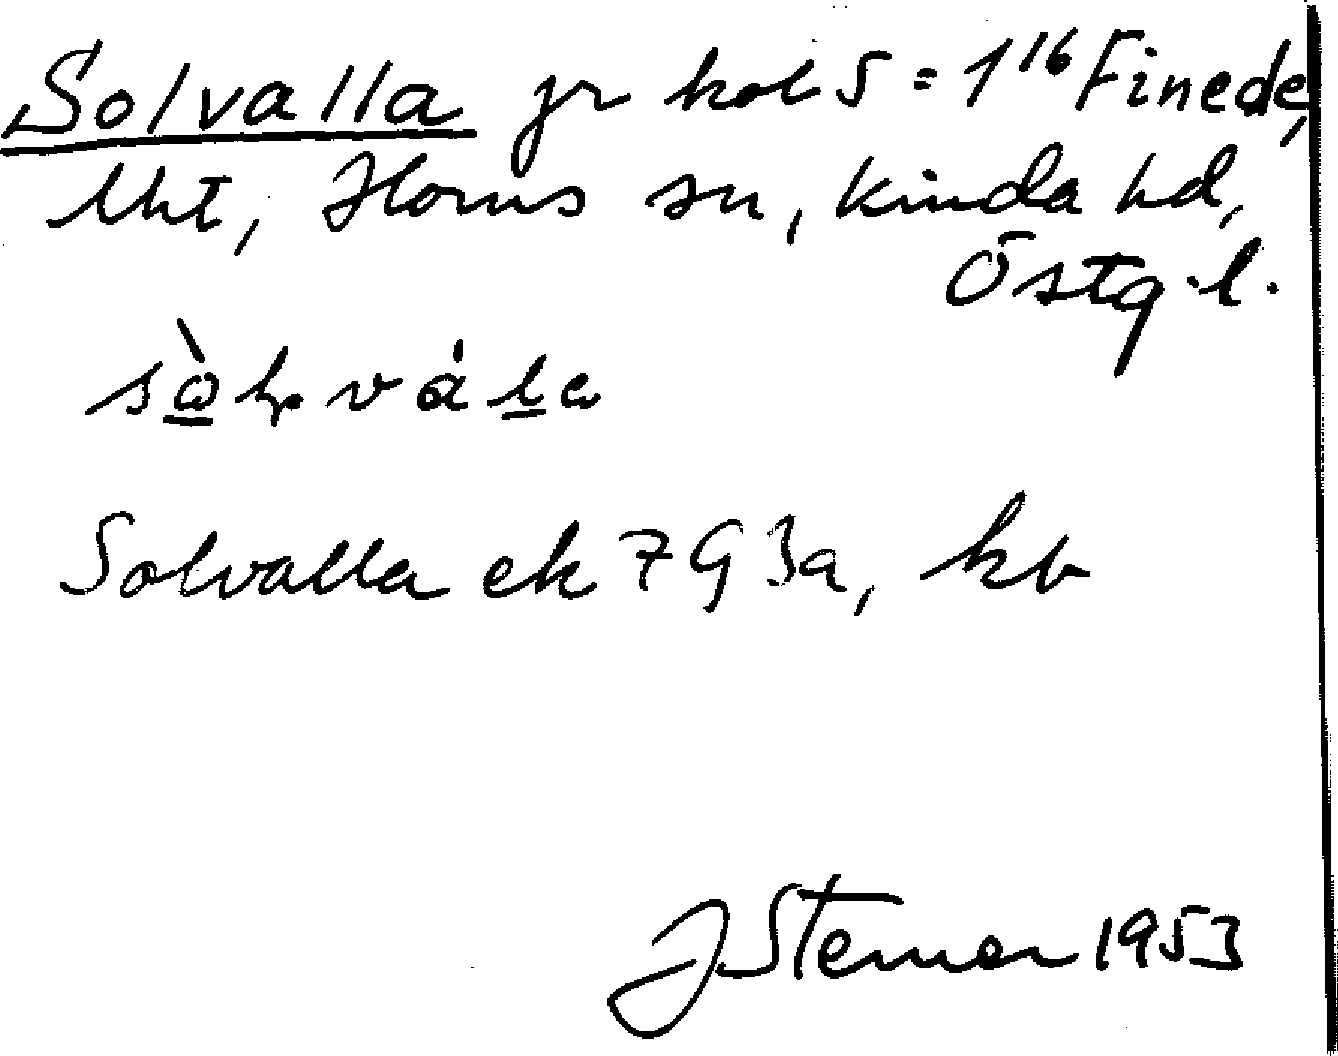 Solvalla jr kol 5 = 1¹⁶ Finede,
lht, Horns sn, Kinda hd,
Östg. l.
Solvalla ek 7G3a, kb
J Sterner 1953